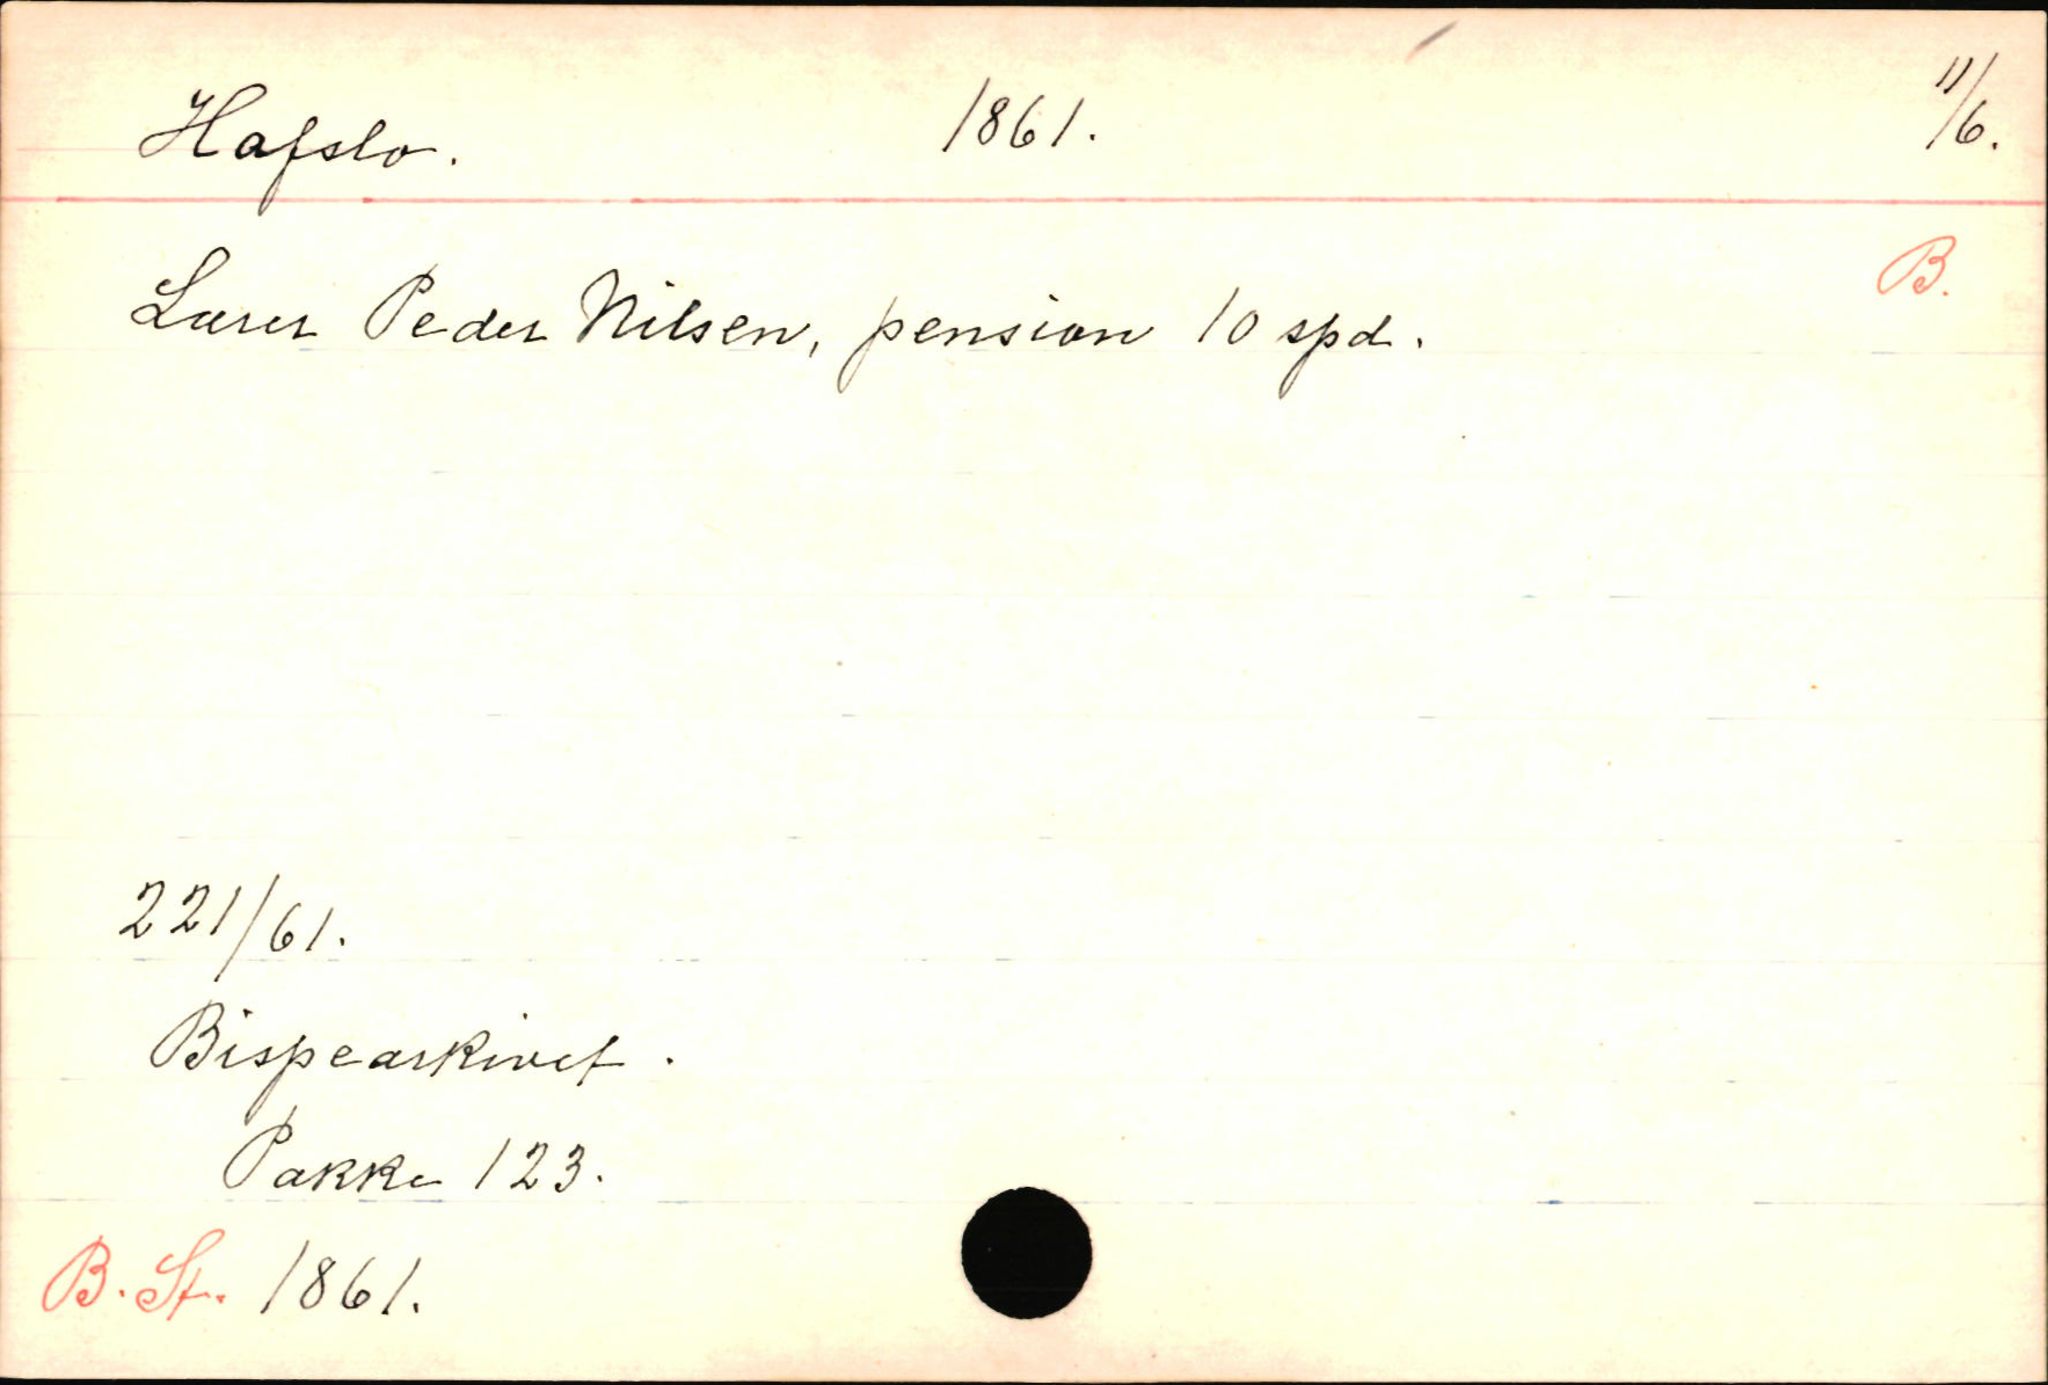 Hafslo. 1861. 11/6.
B.
Lærer Peder Nilsen, pension 10 spd.
221/61.
Bispearkivet.
Pakke 123.
B. St. 1861.